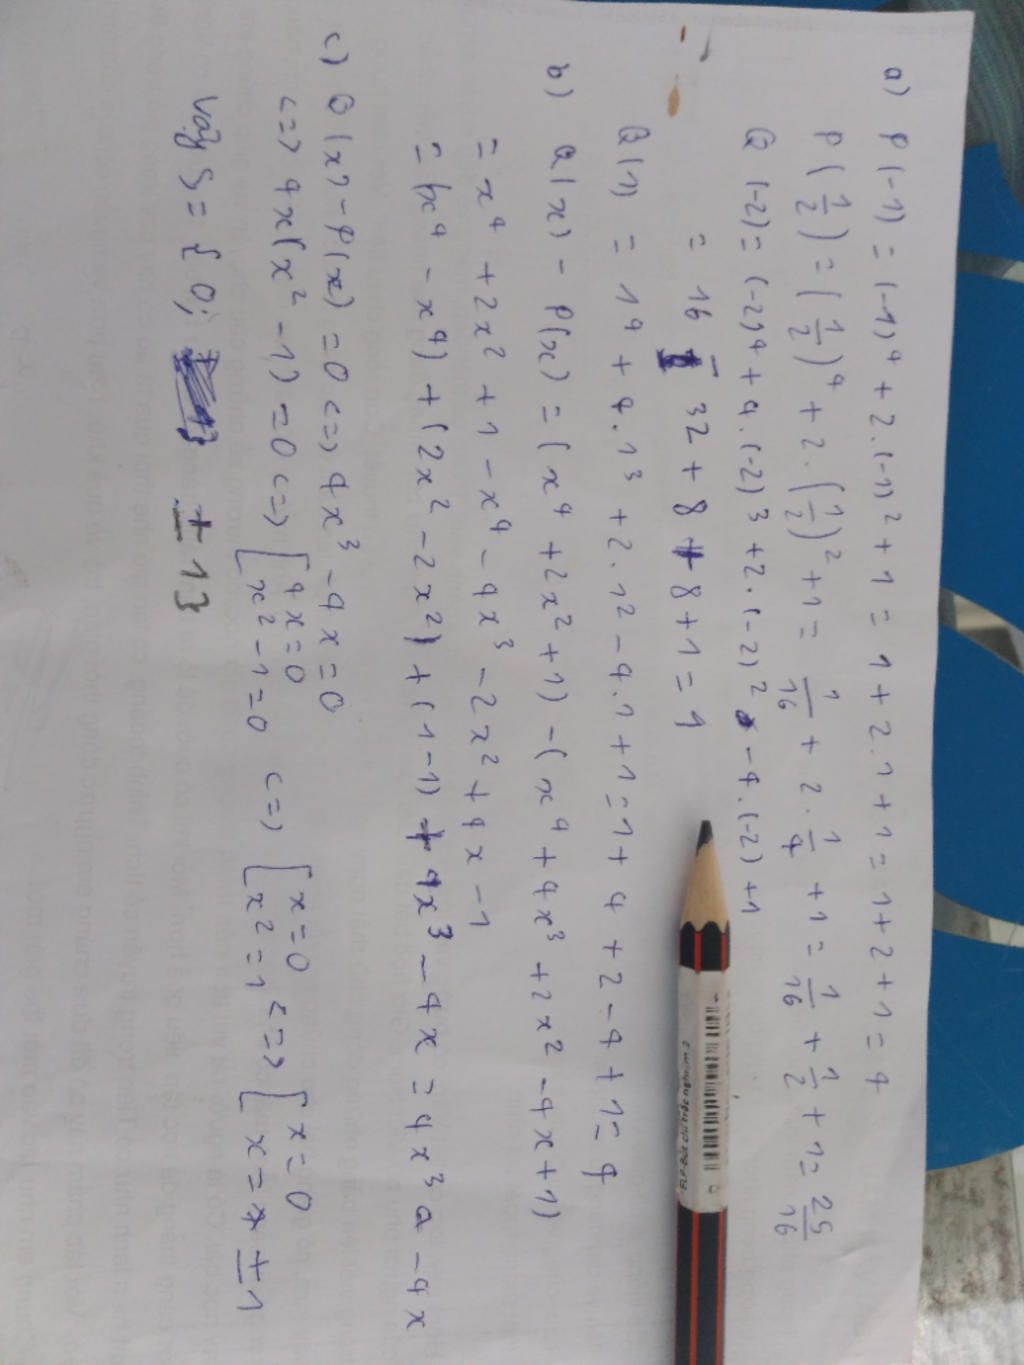 a) P(-1) = (-1)⁴ + 2.(-1)² + 1 = 1 + 2.1 + 1 = 1 + 2 + 1 = 4
P(1/2) = (1/2)⁴ + 2.(1/2)² + 1 = 1/16 + 2.1/4 + 1 = 1/16 + 1/2 + 1 = 25/16
Q(-2) = (-2)⁴ + 4.(-2)³ + 2.(-2)² - 4.(-2) + 1
= 16 - 32 + 8 + 8 + 1 = 1
Q(1) = 1⁴ + 4.1³ + 2.1² - 4.1 + 1 = 1 + 4 + 2 - 4 + 1 = 4
b) Q(x) - P(x) = (x⁴ + 2x² + 1) - (x⁴ + 4x³ + 2x² - 4x + 1)
= x⁴ + 2x² + 1 - x⁴ - 4x³ - 2x² + 4x - 1
= (x⁴ - x⁴) + (2x² - 2x²) + (1 - 1) + 4x³ - 4x = 4x³ - 4x
c) Q(x) - P(x) = 0 <=> 4x³ - 4x = 0
<=> 4x(x² - 1) = 0 <=> [4x = 0 x² - 1 = 0 <=> [x = 0 x² = 1 <=> [x = 0 x = ±1
Vậy S = {0; ±1}